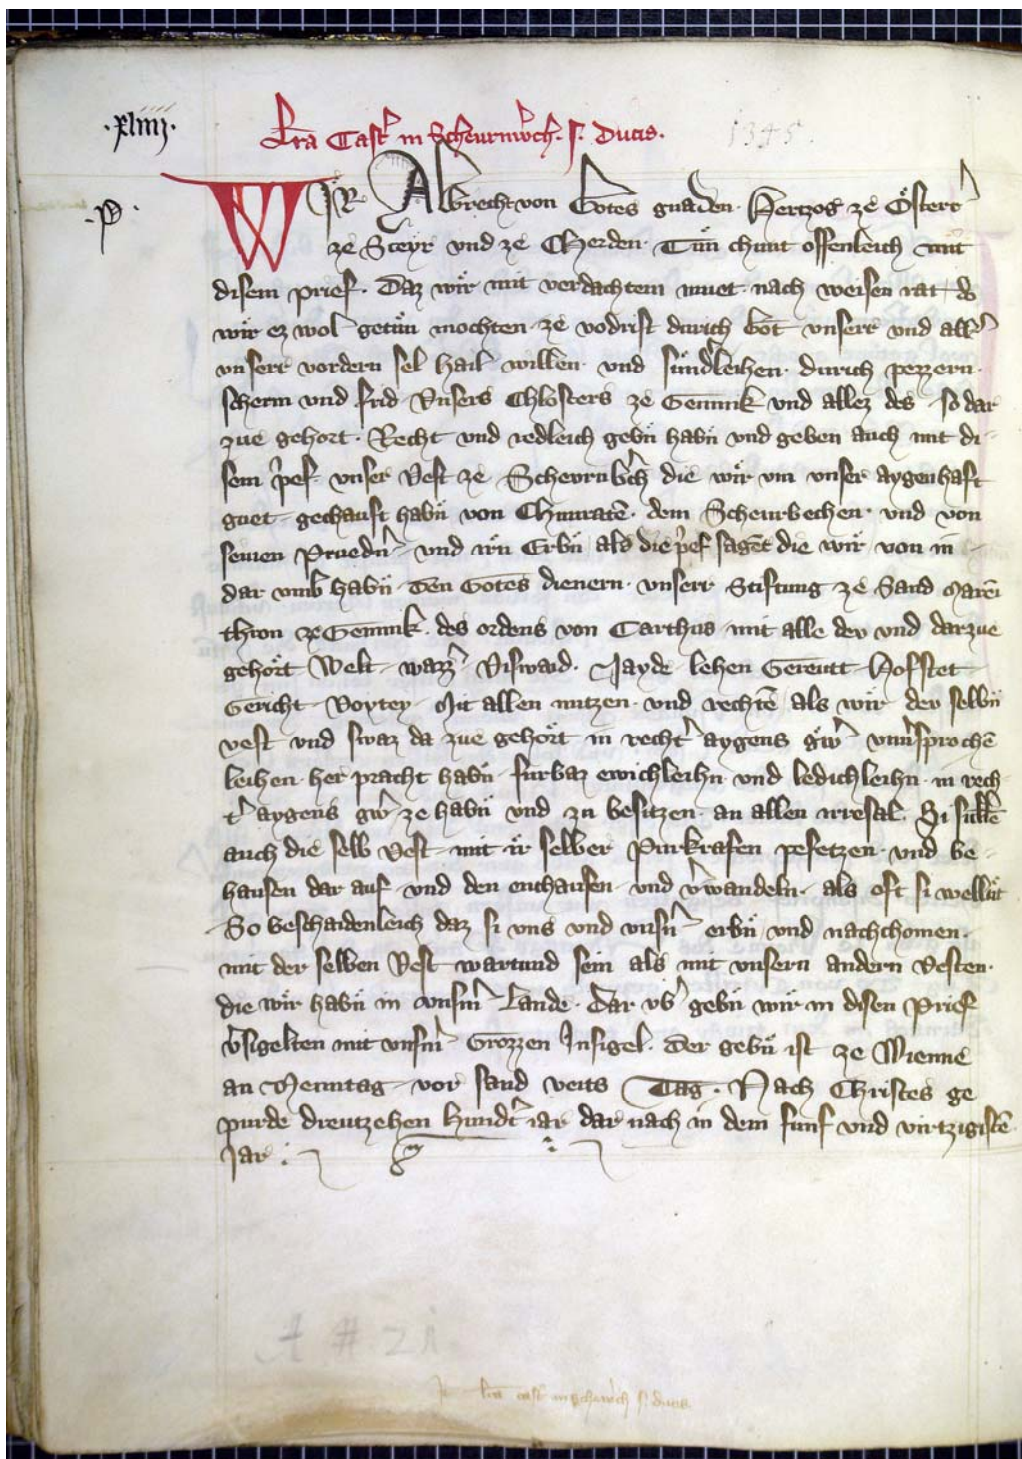 ·xliiij·
Lrā Castˀ in Scheurnwͤch· sˀ· Ducis·
1345·
·P·
WIR Albrecht von Gotes gnaden· Hertzog ze Oͤsterrˀ
ze Steyr vnd ze Cherden· Tuͤn chunt offenleich mit
disem prief· Daz wiͤr mit verdachtem muet· nach weisen rat· do
wiͤr ez wol getuͤn mochten· ze vodrist durich Got vnserr vnd allˀ
vnserr vordern sel hail willen· vnd suͤndˀleihen· durich pezzern·
scherm vnd frid· Vnsers Chlosters ze Gemnik vnd allez des so dar
zue gehort· Recht vnd redleich gebn̄ habn̄ vnd geben auch mit di-
sem pˀef· vnser Vest ze Schevrnbcͤh die wiͤr vm vnser aygenhaft
guet gechauft habn̄ von Chunratē dem Scheurbechen· vnd von
seinen Pruedn̄ˀ vnd irn̄ Erbn̄ als die pˀef sagēt die wiͤr von in
dar vmb habn̄ Den Gotes dienern· vnserr Stiftung ze Sand Marēn
thron ze Gemnik· des ordens von Carthus mit alle dev vnd darzue
gehoͤrt Welt· wazzˀ Viswaid· Jayde lehen Gereutt Hofstet
Gericht Voytey Mit allen nutzen· vnd rechtē als wiͤr der selbn̄
vest vnd swaz da zue gehoͤrt in rechtˀ aygens gẅˀ vnuˀsprochē
leihen her pracht habn̄ furbaz ewichleihn· vnd ledichleihn· in rech-
tˀ aygens gwˀ ze habn̄ vnd zu besitzen· an allen irresal· Si sullē
auch die selb Vest mit iͤr selber Purkrafen pesetzen· vnd be-
hausen dar auf vnd den enthausen vnd vˀwandeln· als oft si wellnͤt
So beschaidenleich daz si vns vnd vnsn̄ˀ erbn̄ vnd nachchomen·
mit der selben Vest wartund sein als mit vnsern andern Vesten·
die wiͤr habn̄ in vnsmˀ Lande· Dar vbˀ gebn̄ wiͤr in disen Prief
vˀsigelten mit vnsmˀ Grozzen Insigel· Der gebn̄ ist ze Wienne
an Menntag vor sand veits Tag· Nach Christes ge
purde dreutzehen Hundˀt iar dar nach in dem funf vnd virtzigistē
Jar·
A # 21
lrā castˀ in schewrͤch sˀ ducis